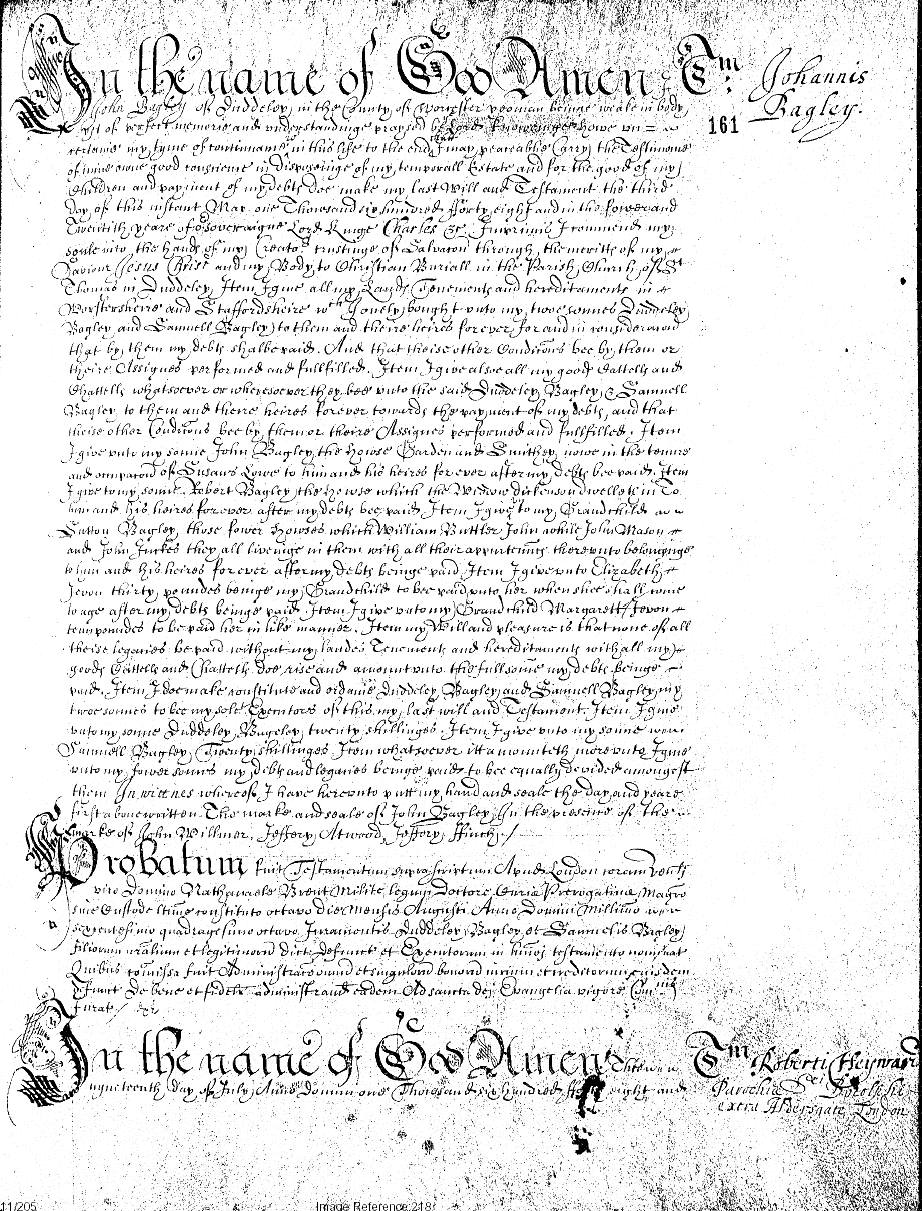 In the name of God Amen I Tm. Johannis
John Bagley of Duddeley in the County of Worcester yeoman beinge weake in body Bagley.
but of perfect memorie and understandinge praysed be Lord knoweinge howe un= 161
certaine my tyme of continuance in this life to the end I may peaceablie Carry the Testimonie
of mine owne good conscience in disposeinge of my temporall Estate and for the good of my
Children and payment of my debts doe make my last Will and Testament the third
day of this instant May one Thousand six hundred fforty eight and in the fower and
Twentith yeare of or soveraigne Lord Kinge Charles &c. Imprimis I commend my
soule into the hands of my Creator trustinge of Salvation through the meritts of my
Saviour Jesus Christ and my Body to Christian Buriall in the Parish Church of St
Thomas in Duddeley, Item I give all my Lands Tenements and hereditaments in
Worstersheire and Staffordsheire wch I lately bought unto my twoe sonnes Duddeley
Bagley and Samuell Bagley to them and theire heires forever for and in consideracon
that by them my debts shalbe paid. And that theise other Condicons bee by them or
theire Assignes performed and fullfilled. Item I give alsoe all my good Cattells and
Chattells whatsoever or wheresoever they bee unto the said Duddeley Bagley & Samuell
Bagley to them and theire heires forever towards the payment of my debts, and that
theise other Condicons bee by them or theire Assignes performed and fullfilled. Item
I give unto my sonne John Bagley the howse Garden and Smithey nowe in the tenure
and occupacon of Susans Lowe to him and his heires forever after my debts bee paid. Item
I give to my sonne Robert Bagley the howse which the Widdow dickenson dwelleth in To
him and his heires forever after my debts bee paid. Item I give to my Grandchild
Dutton Bagley, those fower howses which William Buttler John while John Mason
and John Jeckes they all liveinge in them with all their appurtennces thereunto belonginge
to him and his heires forever after my debts beinge paid Item I give unto Elizabeth
Jevon thirty poundes beinge my Grandchild to bee paid unto her when shee shall come
to age after my debts beinge paid. Item I give unto my Grandchild Margarett Jevon
tenn poundes to be paid her in like manner. Item my Will and pleasure is that none of all
theise legacies be paid without my landes Tenements and hereditaments with all my
goods Cattells and Chattells doe rise and amount unto the full some my debts beinge
paid. Item I doe make constitute and ordaine Duddeley Bagley and Samuell Bagley my
twoe sonnes to bee my sole Executors of this my last will and Testament. Item I give
unto my sonne Duddeley Bageley twenty shillinges. Item I give unto my sonne
Samuell Bagley Twenty shillinges. Item whatsoever itt amounteth more unto I give
unto my fower sonns my debts and legacies beinge paid to bee equally devided amongest
them In wittnes whereof I have hereunto putt my hand and seale the day and yeare
first above written. The marke and seale of John Bagley In the presence of the
marke of John Willmer, Jeffery Atwood, Jeffery Ffinch./
Probatum fuit Testamentum suprascriptum Apud London coram venbli
viro Domino Nathanaele Brent Milite legum Doctore Curie Prerogative Magro
sive Custode ltime constituto octavo die Mensis Augusti Anno Domini Millimo
sexcentesimo quadragesimo octavo Juramentis Duddeley Bagley et Samuelis Bagley
filiorum nralium et legitimorum dicti Defuncti et Executorum in hmoi testamento nominat
Quibus comissa fuit Administraco omnium et singulorum bonorum iurium et creditorum eiusdem
Defuncti De bene et fideliter administrand eadem Ad sancta dei Evangelia vigore Comnis
Jurat./ Exr
In the name of God Amen Tm Roberti Heyward
nyneteenth day of July Anno Domini one Thousand six hundred fforty eight and Parochie Sci Botolphi
extra Aldersgate London
11/205 Image Reference:218